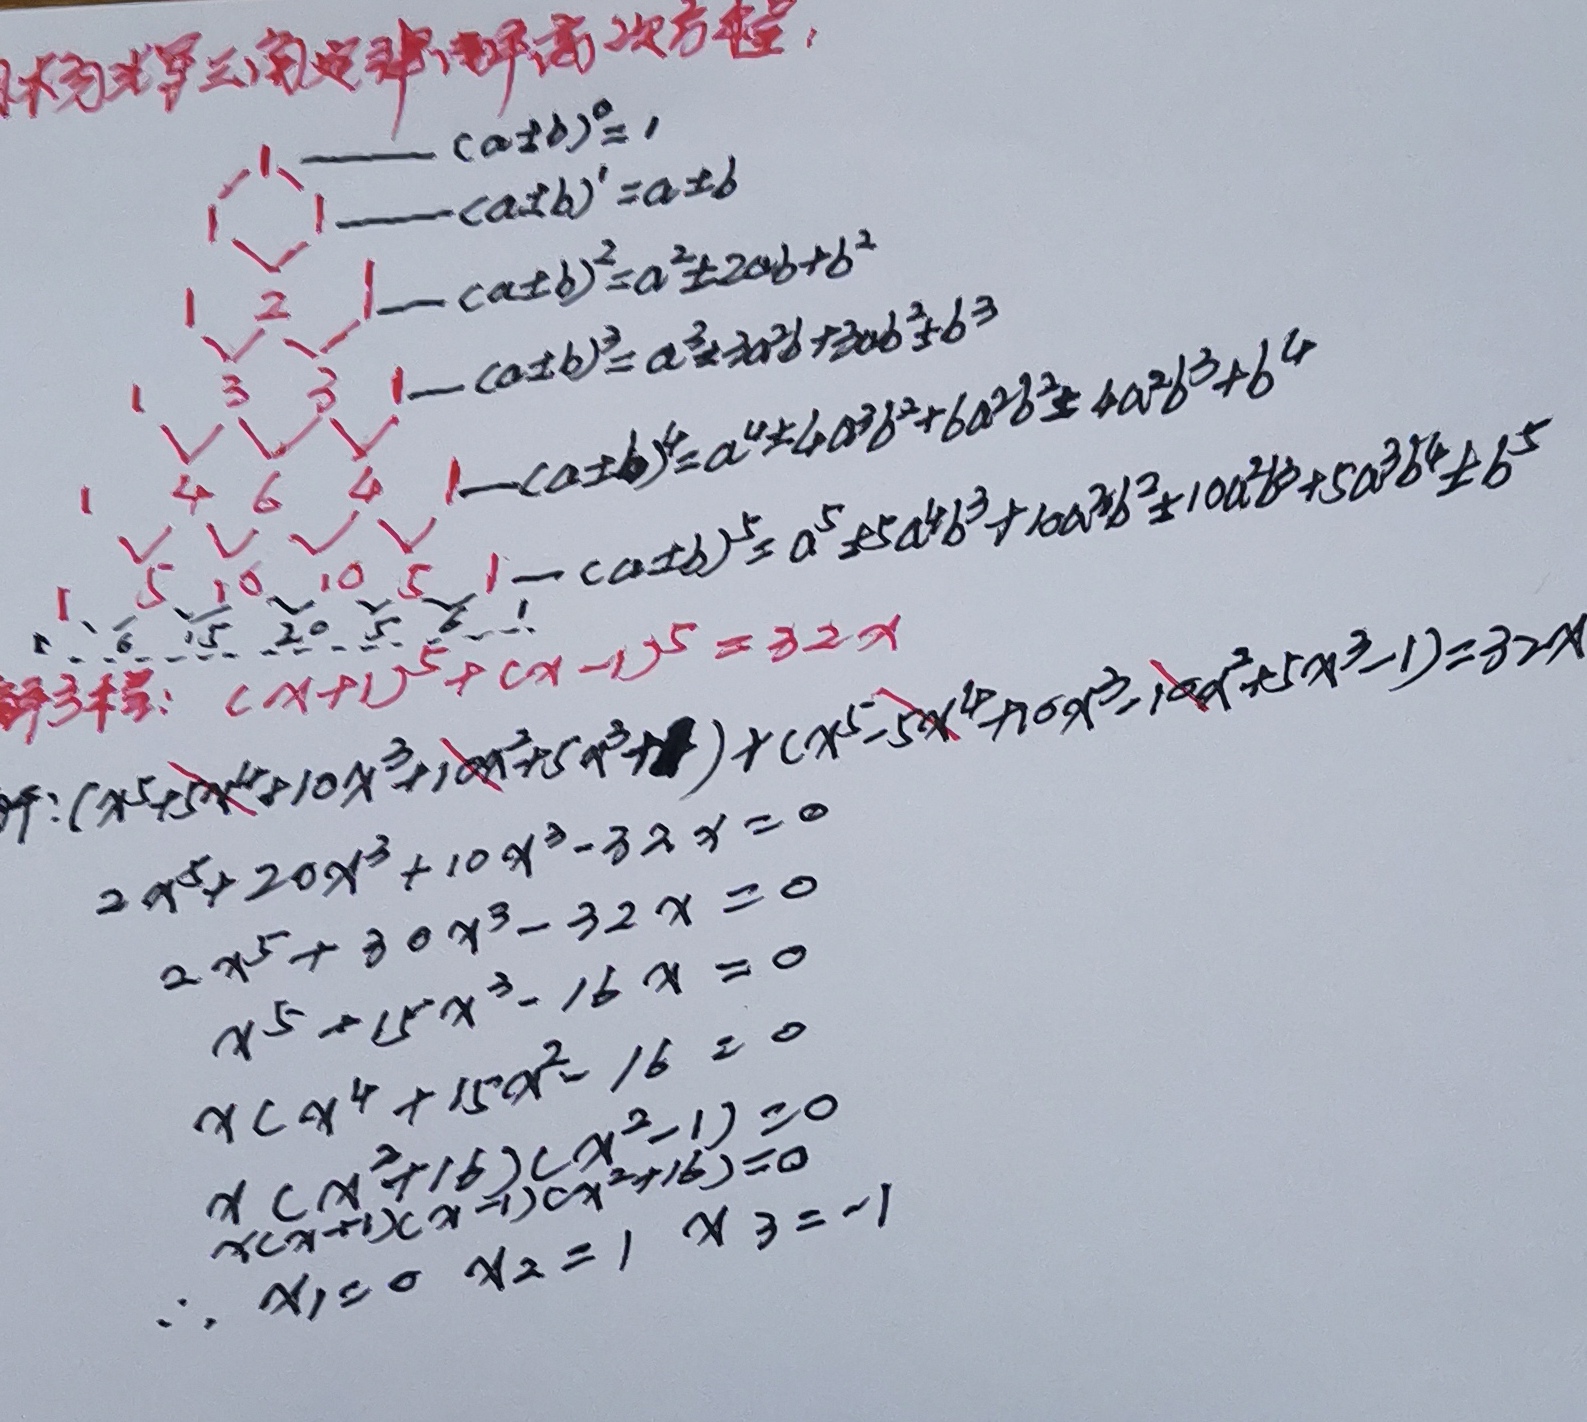 三角定律,解高次方程,
1 —— (a±b)⁰=1
1 1 —— (a±b)¹=a±b
1 2 1 — (a±b)²=a²±2ab+b²
1 3 3 1 — (a±b)³=a³±3a²b+3ab²±b³
1 4 6 4 1 — (a±b)⁴=a⁴±4a³b²+6a²b²±4a²b³+b⁴
1 5 10 10 5 1 — (a±b)⁵=a⁵±5a⁴b³+10a³b²±10a²b³+5a³b⁴±b⁵
1 6 15 20 5 6 1
解方程: (x+1)⁵+(x-1)⁵=32x
解:(x⁵+5x⁴+10x³+10x²+5x³+1)+(x⁵-5x⁴+10x³-10x²+5x³-1)=32x
2x⁵+20x³+10x³-32x=0
2x⁵+30x³-32x=0
x⁵+15x³-16x=0
x(x⁴+15x²-16=0
x(x²+16)(x²-1)=0
x(x+1)(x-1)(x²+16)=0
∴ x₁=0 x₂=1 x₃=-1